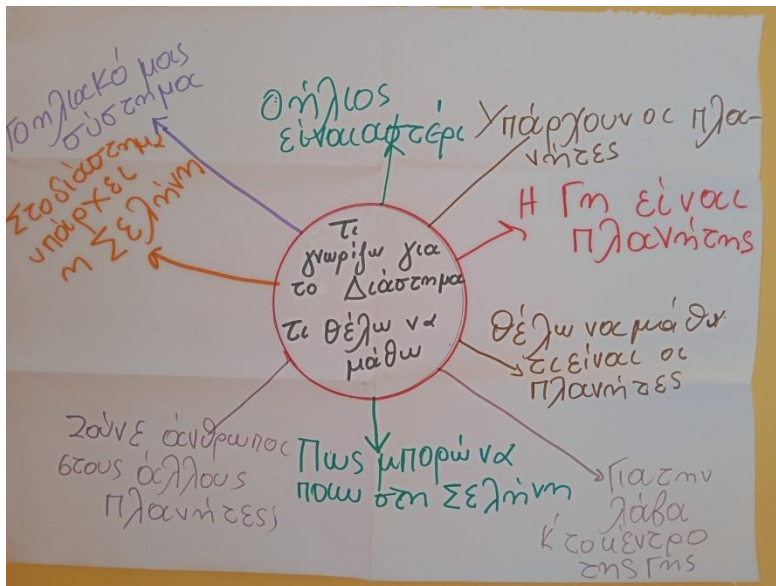 Το ηλιακό μας
σύστημα
Ο ήλιος
είναι αστέρι
Υπάρχουν οι πλα-
νήτες
Στο διάστημα
υπάρχει
η Σελήνη
Η Γη είναι
πλανήτης
Τι
γνωρίζω για
το Διάστημα
τι θέλω να
μάθω
Θέλω να μάθω
τι είναι οι
πλανήτες
Ζούνε άνθρωποι
στους άλλους
πλανήτες;
Πως μπορώ να
πάω στη Σελήνη
Για την
λάβα
κ' το κέντρο
της Γης